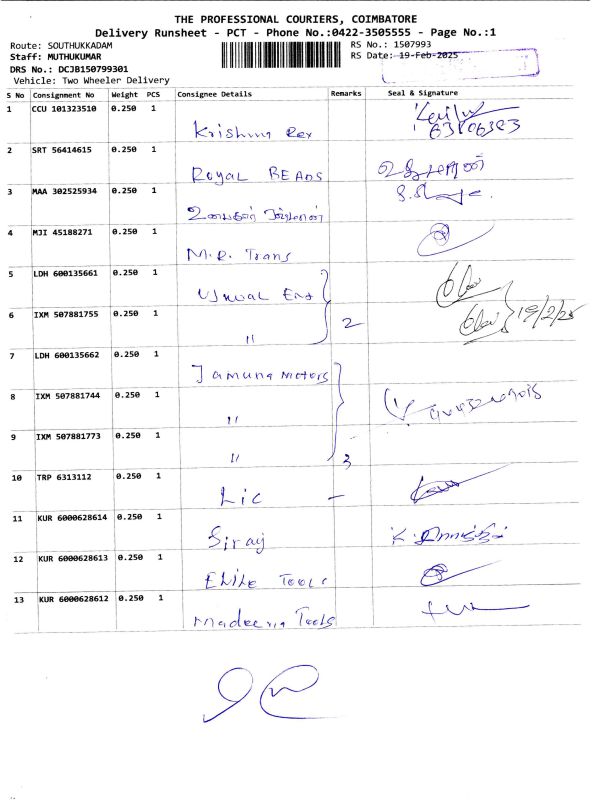 THE PROFESSIONAL COURIERS, COIMBATORE
Delivery Runsheet - PCT - Phone No.:0422-3505555 - Page No.:1
Route: SOUTHUKKADAM RS No.: 1507993
Staff: MUTHUKUMAR RS Date: 19-Feb-2025
DRS No.: DCJB150799301
Vehicle: Two Wheeler Delivery
S No Consignment No Weight PCS Consignee Details Remarks Seal & Signature
1 CCU 101323510 0.250 1
Krishna
2 SRT 56414615 0.250 1
Royal BEADS
3 MAA 302525934 0.250 1
4 MJI 45188271 0.250 1
M.R. Trans
5 LDH 600135661 0.250 1
6 IXM 507881755 0.250 1
" 2 19/2/25
7 LDH 600135662 0.250 1
Jamuna Motors
8 IXM 507881744 0.250 1
"
9 IXM 507881773 0.250 1
" 3
10 TRP 6313112 0.250 1
Lic –
11 KUR 6000628614 0.250 1
Siraj
12 KUR 6000628613 0.250 1
Elite Tools
13 KUR 6000628612 0.250 1
Madeena Tools